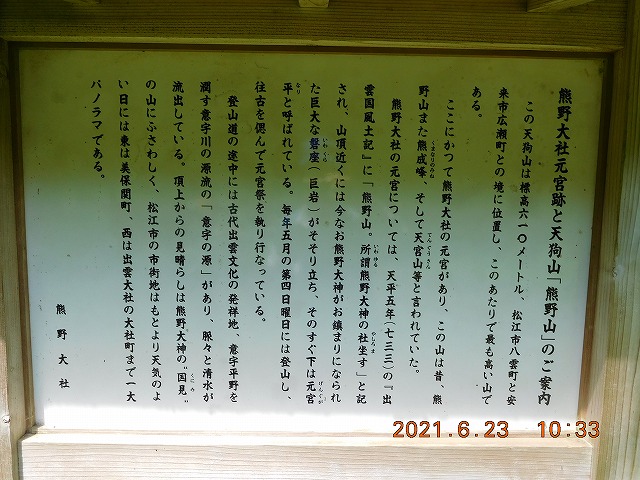 熊野大社元宮跡と天狗山「熊野山」のご案内
この天狗山は標高六一〇メートル、松江市八雲町と安
来市広瀬町との境に位置し、このあたりで最も高い山で
ある。
ここにかつて熊野大社の元宮があり、この山は昔、熊
野山また熊成峰、そして天宮山等と言われていた。
熊野大社の元宮については、天平五年(七三三)の『出
雲国風土記』に「熊野山。所謂熊野大神の社坐す」と記
され、山頂近くには今なお熊野大神がお鎮まりになられ
た巨大な磐座(巨岩)がそそり立ち、そのすぐ下は元宮
平と呼ばれている。毎年五月の第四日曜日には登山し、
往古を偲んで元宮祭を執り行なっている。
登山道の途中には古代出雲文化の発祥地、意宇平野を
潤す意宇川の源流の「意宇の源」があり、脈々と清水が
流出している。頂上からの見晴らしは熊野大神の"国見"
の山にふさわしく、松江市の市街地はもとより天気のよ
い日には東は美保関町、西は出雲大社の大社町まで一大
パノラマである。
熊野大社
2021.6.23 10:33